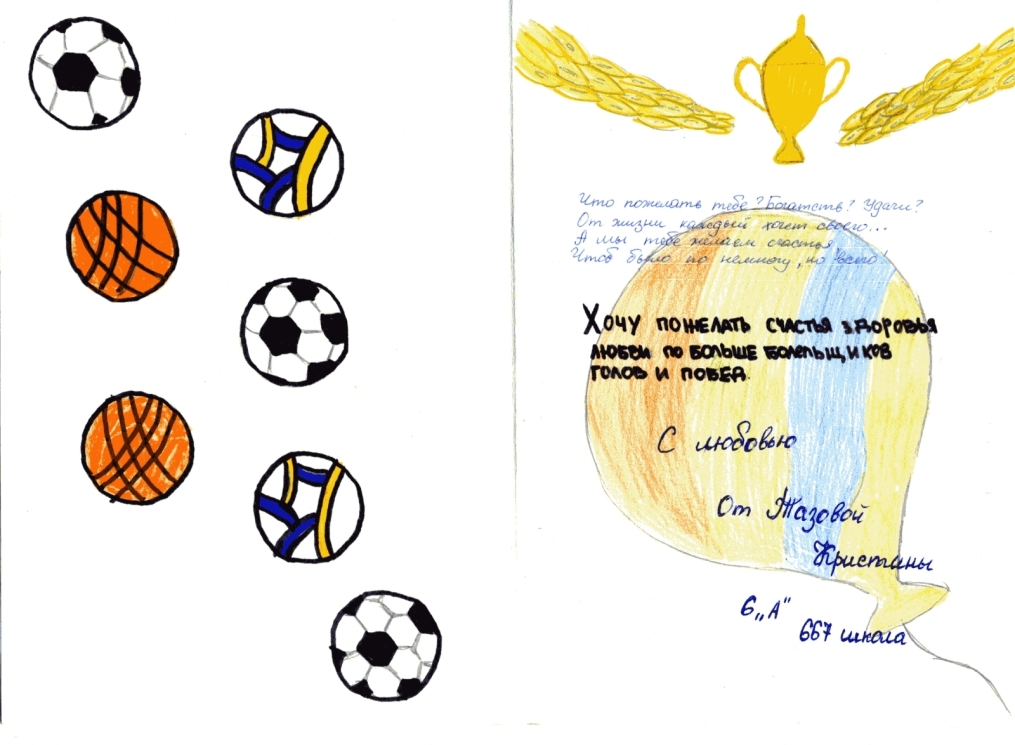 Что пожелать тебе? Богатств? Удачи?
От жизни каждый хочет своего...
А мы тебе желаем счастья
Чтоб было по немногу, но всего!
Хочу пожелать счастья здоровья
любви по больше болельщиков
голов и побед.
С любовью
От Тазовой
Кристины
6 „А"
667 школа